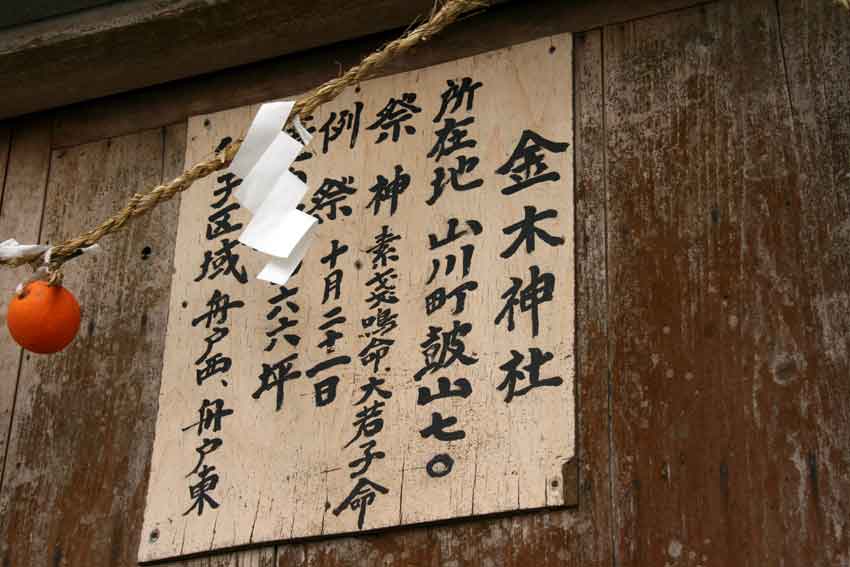 金木神社
所在地 山川町皷山七〇
祭神 素戔嗚命、大若子命
例祭 十月二十一日
六六坪
子区域 舟戸西、舟戸東